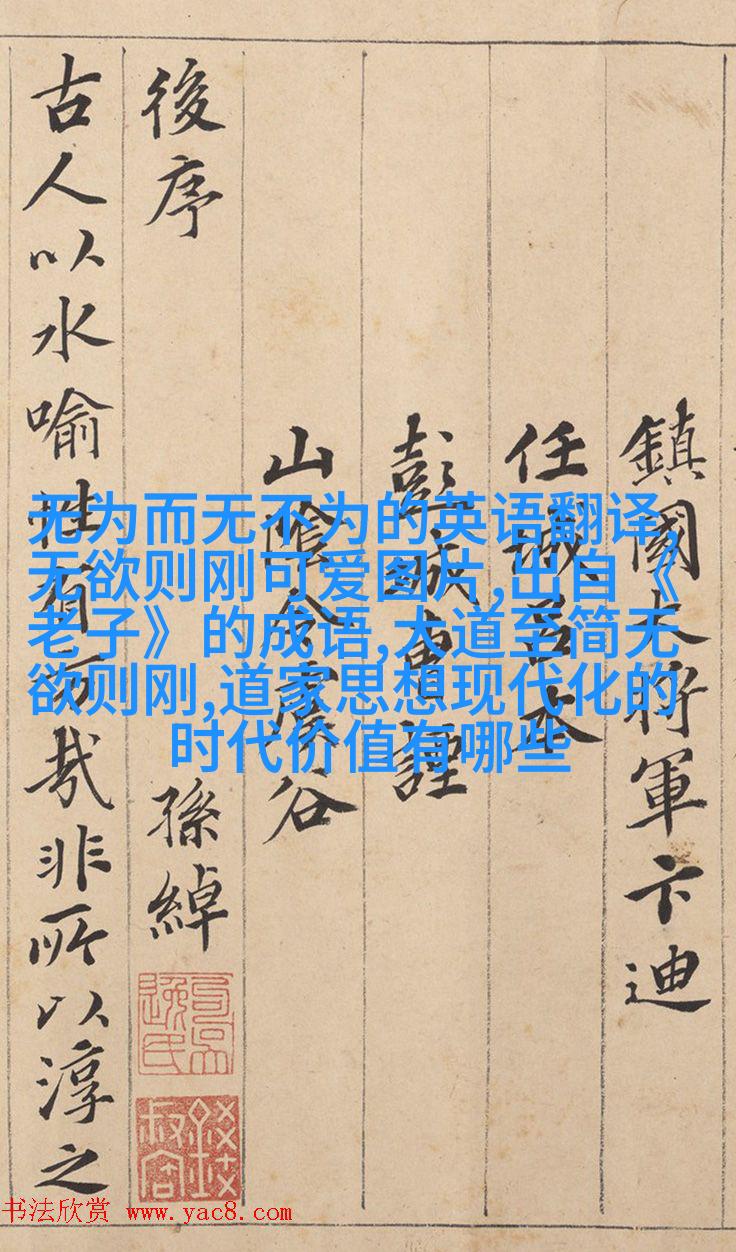 鎮國大將軍卞迪
任城呂本
彭城曹諲
山陰令虞谷
後序
孫綽
古人以水喻性有旨哉非所以淳之
无为而无不为的英语翻译,
无欲则刚可爱图片,出自《
老子》的成语,大道至简无
欲则刚,道家思想现代化的
时代价值有哪些
书法欣赏 www.yac8.com